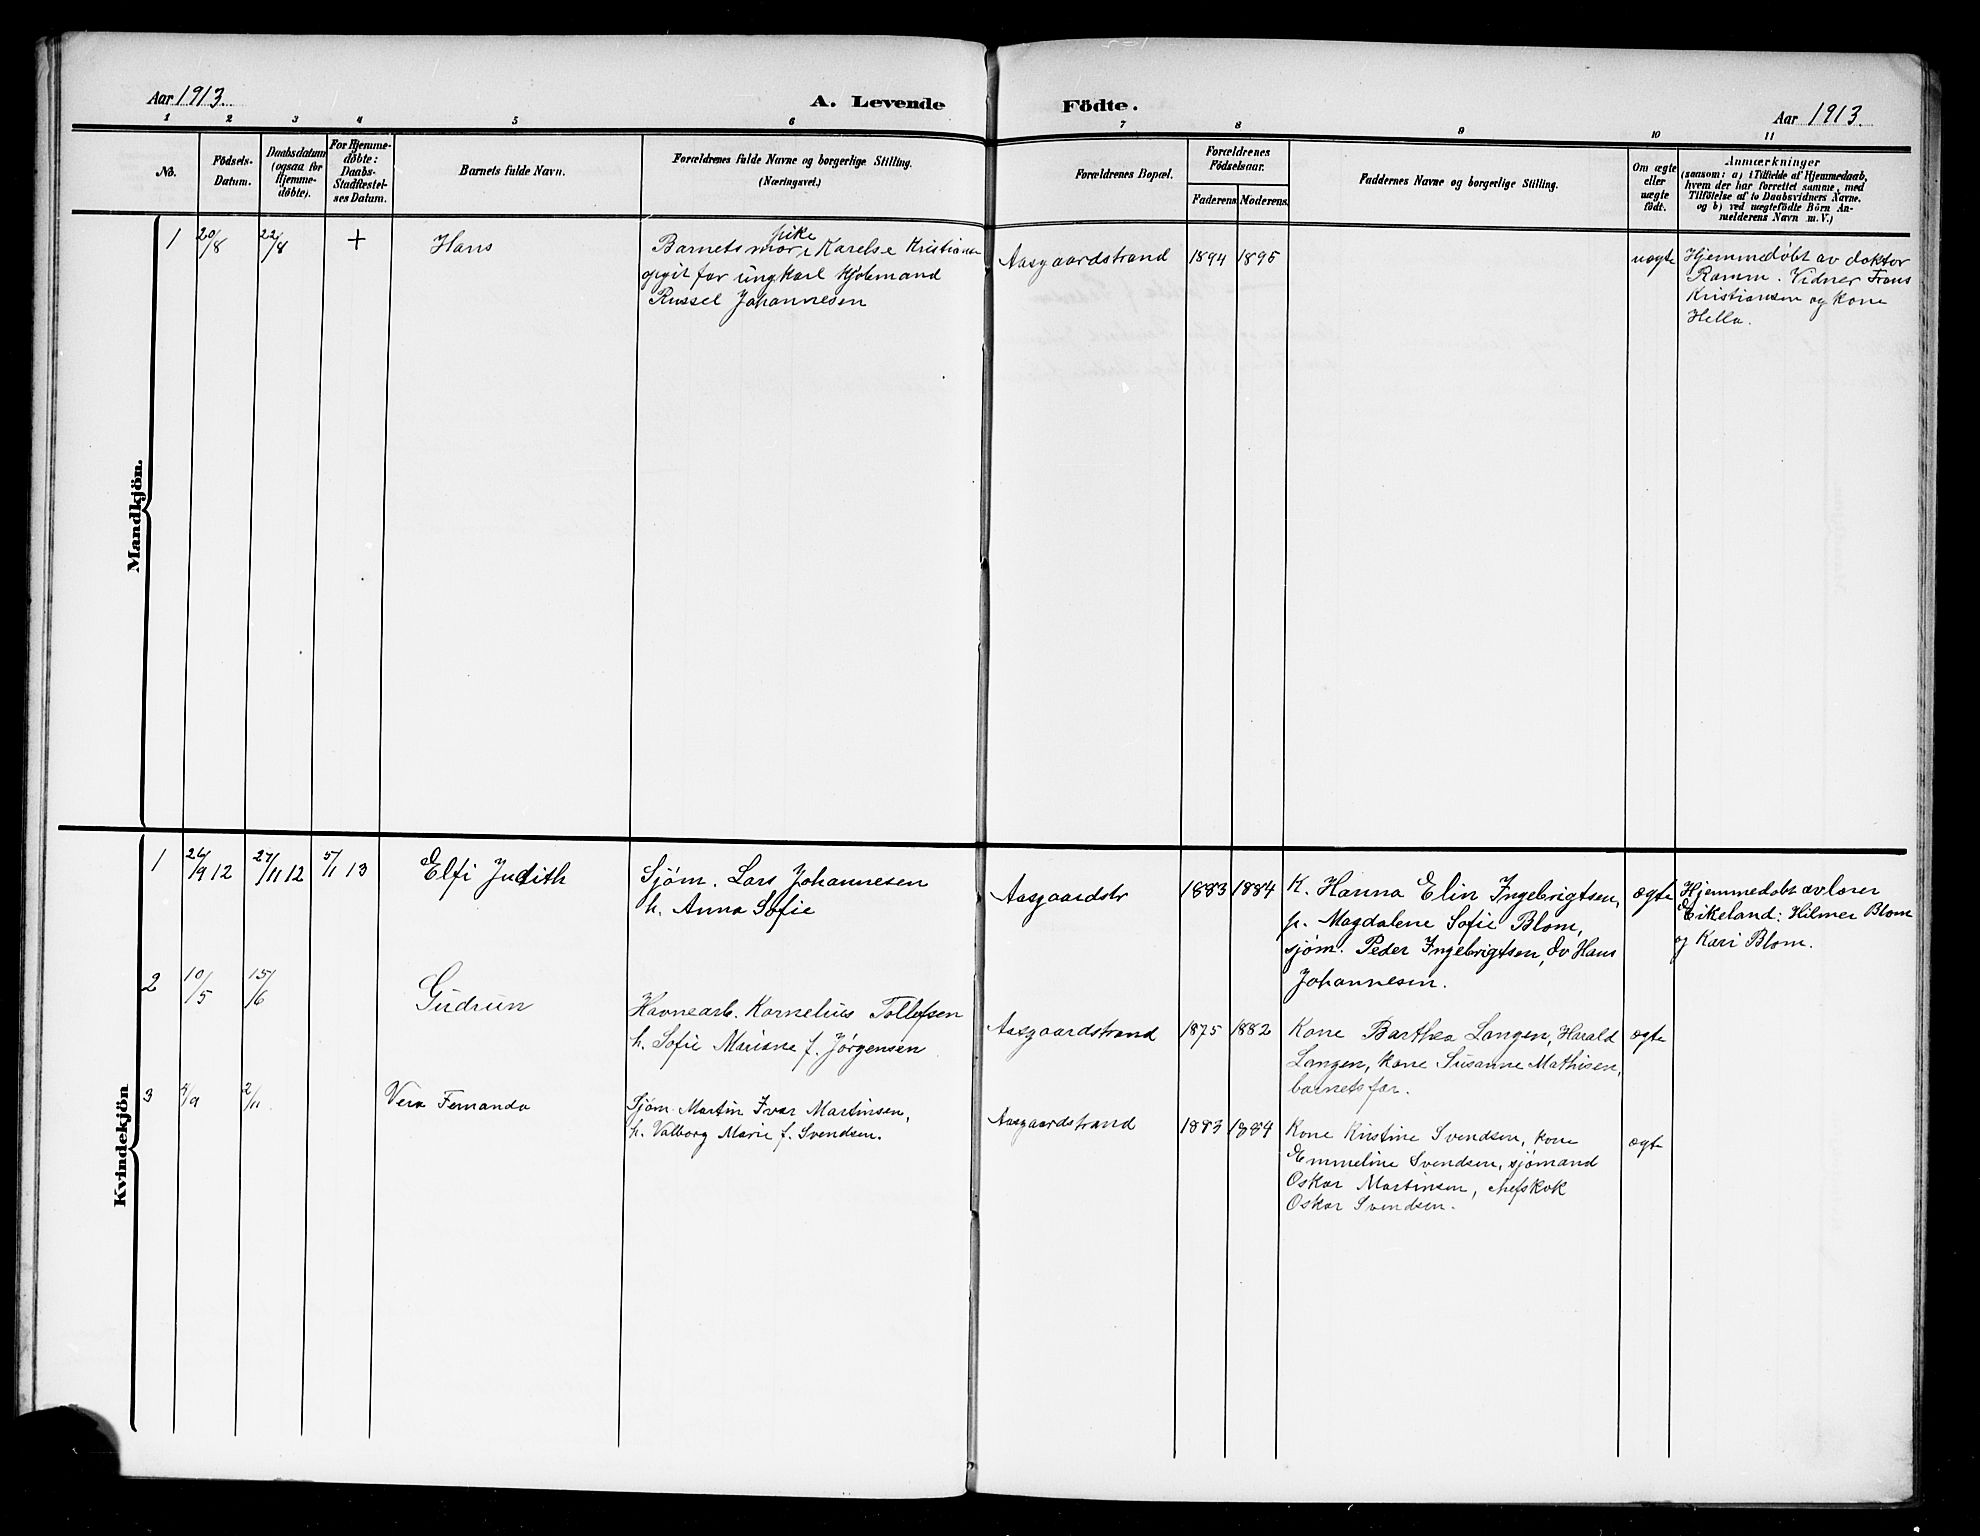 Aar 1913.
A. Levende
Födte.
Aar 1913.
1 2 3 4 5 6 7 8 9 10 11
No.
Födsels-
Datum.
Daabsdatum
(ogsaa for
Hjemme-
döbte).
For Hjemme-
døbte:
Daabs-
Stadfæstel-
ses Datum.
Barnets fulde Navn.
Forældrenes fulde Navne og borgerlige Stilling.
(Næringsvei.)
Forældrenes Bopæl.
Forældrenes
Födselsaar.
Faderens. Moderens.
Faddernes Navne og borgerlige Stilling.
Om ægte
eller
uægte
födt.
Anmærkninger
(saasom: a) i Tilfælde af Hjemmedaab,
hvem der har forrettet samme, med
Tilföielse af to Daabsvidners Navne.
og b) ved uægtefödte Börn An-
melderens Navn m. V.)
Mandkjön.
1 20/8 22/8 + Hans
pike
Barnets mor: Karelse Kristianse
opgit far ungkarl
Russel Johannesen
Aasgaardstrand 1894 1895
uægte
Hjemmedøbt av doktor
Ramm. Vidner Frans
Kristiansen og kone
Hella.
Kvindekjön
1 26/9 12 27/11 12 5/1 13 Elfi Judith
Sjøm. Lars Johannesen
h. Anna Sofie
Aasgaardstr 1883 1884
K. Hanna Elin Ingebrigtsen,
p. Magdalene Sofie Blom,
sjøm. Peder Ingebrigtsen, do Hans
Johannesen.
ægte
Hjemmedøbt av lærer
Eikeland: Hilmer Blom
og Kari Blom.
2 10/5 15/6 Gudrun
Havnearb. Kornelius Tollefsen
h. Sofie Mariane f. Jørgensen
Aasgaardstrand 1875 1882
Kone Barthea Langen, Harald
Langen, kone Susanne Mathisen,
barnets far.
ægte
3 4/9 2/11 Vera Fernanda
Sjøm. Martin Ivar Martinsen,
h. Valborg Marie f. Svendsen.
Aasgaardstrand 1883 1884
Kone Kristine Svendsen, kone
Emmeline Svendsen, sjømand
Oskar Martinsen, chefskok
Oskar Svendsen.
ægte